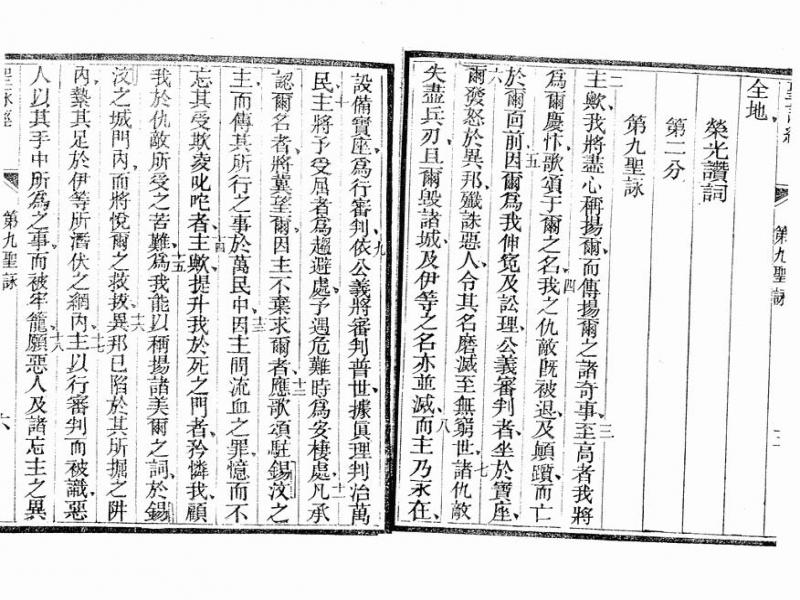 全地、
榮光讚詞
第二分
第九聖詠
二 主歟、我將盡心稱揚爾、而傳揚爾之諸奇事、三 至高者、我將
為爾慶忭、歌頌于爾之名、四 我之仇敵既被退、及顛躓而亡
於爾面前、五 因爾為我伸冤及訟理、公義審判者、坐於寶座、
六 爾發怒於異邦、殲誅惡人、令其名磨滅、至無窮世、七 諸仇敵
失盡兵刃、且爾毀諸城、及伊等之名亦並滅、八 而主乃永在、
第九聖詠
設備寶座、為行審判、九 依公義將審判普世、據真理判治萬
民、十 主將予受屈者為趨避處、予遇危難時為安棲處、十一 凡承
認爾名者、將冀望爾、因主不棄求爾者、十二 應歌頌駐錫汶之
主、而傳其所行之事於萬民中、十三 因主問流血之罪、憶而不
忘其受欺凌叱咤者、十四 主歟、提升我於死之門者、矜憐我、顧
我於仇敵所受之苦難、十五 為我能以稱揚諸美爾之詞、於錫
汶之城門內、而將悅爾之救拔、十六 異邦已陷於其所掘之阱
內、縶其足於伊等所潛伏之網內、十七 主以行審判而被識、惡
人以其手中所為之事而被牢籠、十八 願惡人及諸忘主之異
聖詠經
第九聖詠
六